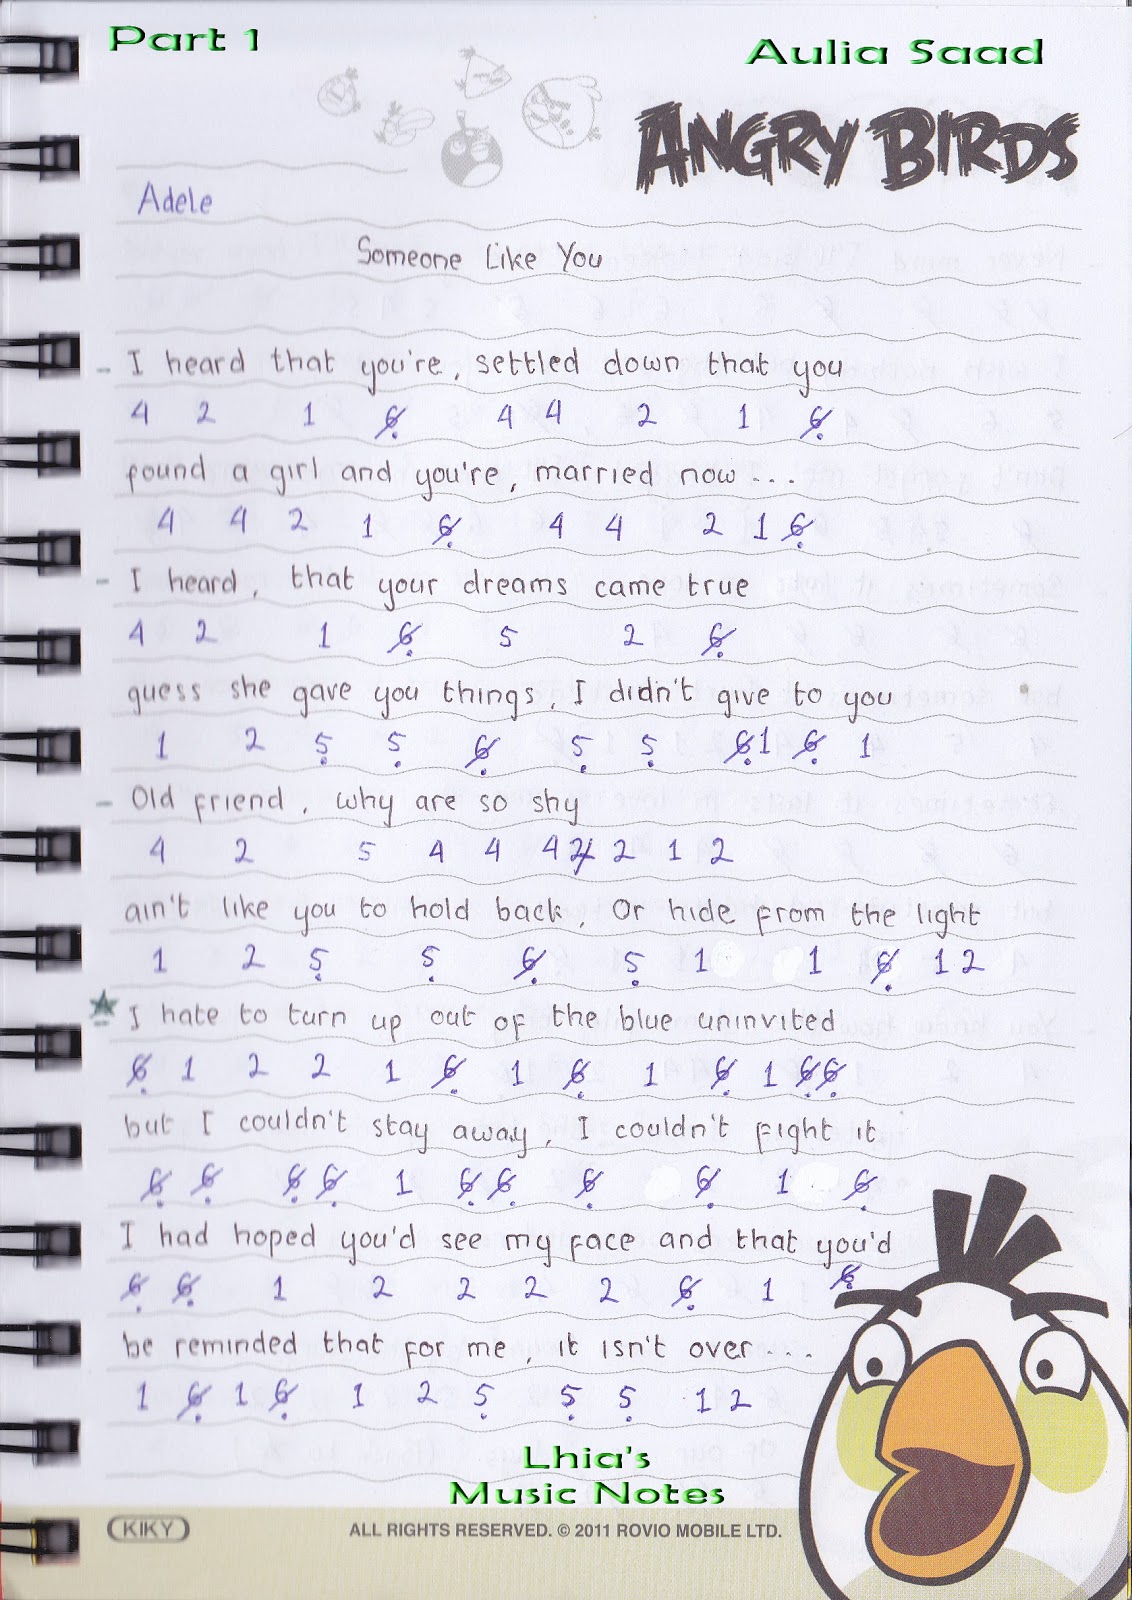 Part 1
Aulia Saad
ANGRY BIRDS
Adele
Someone Like You
- I heard that you're, settled down that you
4 2 1 6̸̣ 4 4 2 1 6̸̣
found a girl and you're, married now...
4 4 2 1 6̸̣ 4 4 2 1 6̸̣
- I heard, that your dreams came true
4 2 1 6̸̣ 5 2 6̸̣
guess she gave you things, I didn't give to you
1 2 5̣ 5̣ 6̸̣ 5̣ 5̣ 6̸̣ 1 6̸̣ 1
- Old friend, why are so shy
4 2 5 4 4 4 2 1 2
ain't like you to hold back, Or hide from the light
1 2 5̣ 5̣ 6̸̣ 5̣ 1 1 6̸̣ 1 2
★ - I hate to turn up out of the blue uninvited
6̸̣ 1 2 2 1 6̸̣ 1 6̸̣ 1 6̸̣ 1 6̸̣ 6̸̣
but I couldn't stay away, I couldn't fight it
6̸̣ 6̸̣ 6̸̣ 6̸̣ 1 6̸̣ 6̸̣ 6̸̣ 6̸̣ 1 6̸̣
I had hoped you'd see my face and that you'd
6̸̣ 6̸̣ 1 2 2 2 2 6̸̣ 1 6̸̣
be reminded that for me, it isn't over...
1 6̸̣ 1 6̸̣ 1 2 5̣ 5̣ 5̣ 1 2
Lhia's
Music Notes
KIKY
ALL RIGHTS RESERVED. © 2011 ROVIO MOBILE LTD.